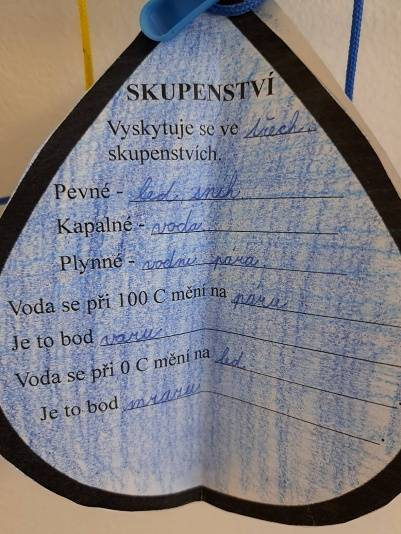 SKUPENSTVÍ
Vyskytuje se ve třech
skupenstvích.
Pevné - led, sníh
Kapalné - voda
Plynné - vodní pára
Voda se při 100 C mění na páru
Je to bod varu
Voda se při 0 C mění na led
Je to bod mrazu